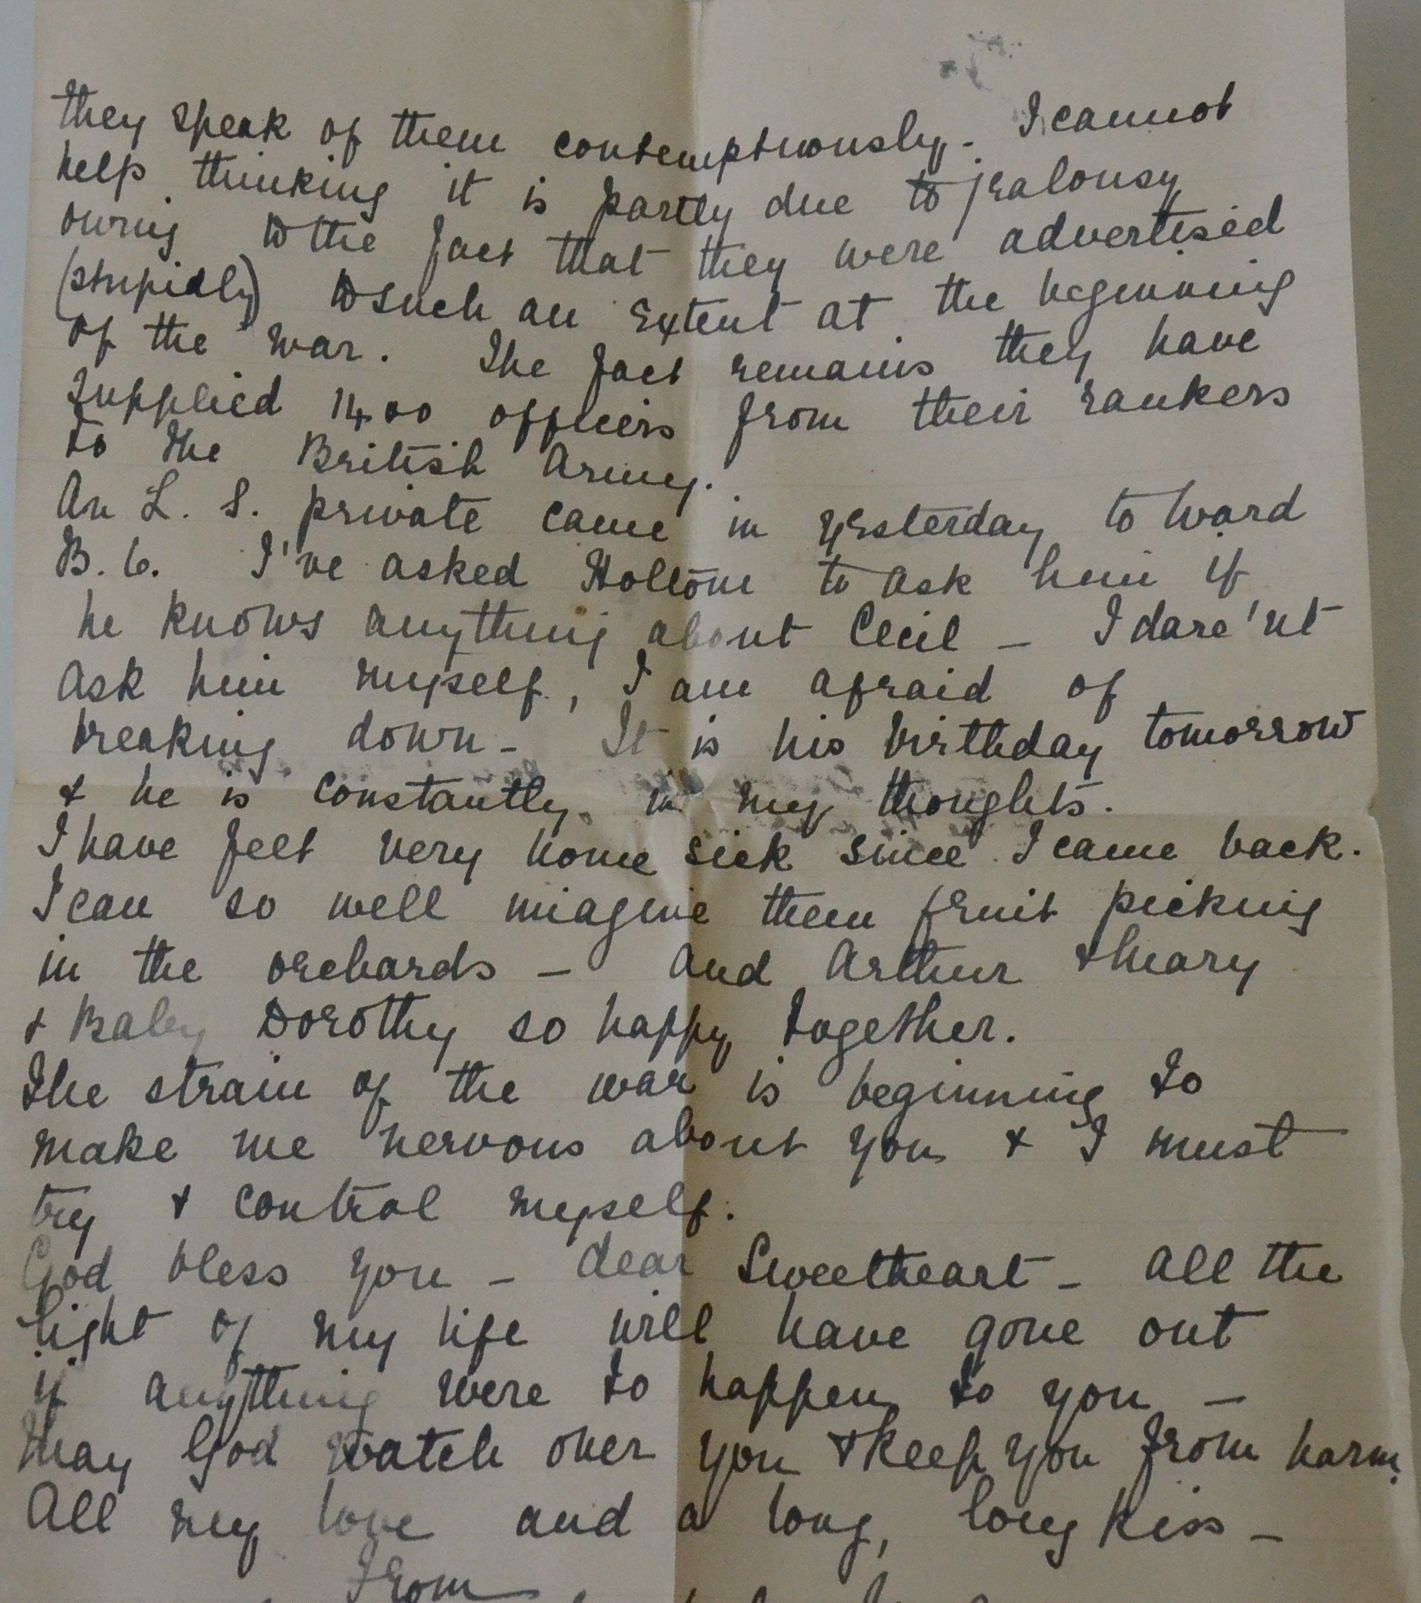 they speak of them contemptuously. I cannot
help thinking it is partly due to jealousy
owing to the fact that they were advertised
(stupidly) to such an extent at the beginning
of the war. The fact remains they have
supplied 1400 officers from their rankers
to the British Army.
An L. S. private came in yesterday to Ward
B. 6. I've asked Holtom to ask him if
he knows anything about Cecil – I dare'nt
ask him myself, I am afraid of
breaking down – It is his birthday tomorrow
& he is constantly in my thoughts.
I have felt very home sick since I came back.
I can so well imagine them fruit picking
in the orchards – and Arthur & Mary
& Baby Dorothy so happy together.
The strain of the war is beginning to
make me nervous about you & I must
try & control myself.
God bless you – dear Sweetheart – all the
light of my life will have gone out
if anything were to happen to you –
May God watch over you & keep you from harm.
All my love and a long, long kiss –
From